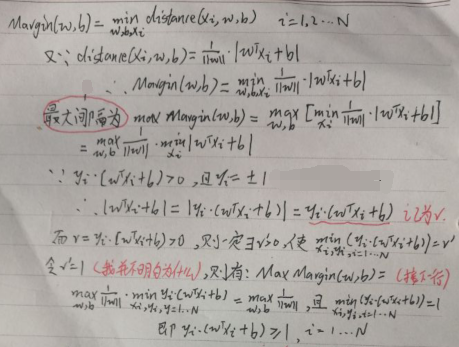 Margin(w,b) = min_{w,b,xi} distance(xi,w,b) i=1,2...N
又∵ distance(xi,w,b) = 1/||w|| · |wᵀxi+b|
∴ Margin(w,b) = min_{w,b,xi} 1/||w|| · |wᵀxi+b|
最大间隔为 max Margin(w,b) = max_{w,b} [min_{xi} 1/||w|| · |wᵀxi+b|]
= max_{w,b} 1/||w|| · min_{xi} |wᵀxi+b|
∵ yi·(wᵀxi+b)>0, 且 yi = ±1
∴ |wᵀxi+b| = |yi·(wᵀxi+b)| = yi·(wᵀxi+b) 记为r.
而 r = yi·(wᵀxi+b)>0, 则一定∃r'>0, 使 min_{xi,yi,i=1...N} (yi·(wᵀxi+b)) = r'
令r'=1 (我并不明白为什么), 则有: Max Margin(w,b) = (接下行)
max_{w,b} 1/||w|| · min_{xi,yi,y=1...N} yi·(wᵀxi+b) = max_{w,b} 1/||w||, 且 min_{xi,yi,i=1...N} (yi·(wᵀxi+b))=1
即 yi·(wᵀxi+b) ≥ 1, i=1...N